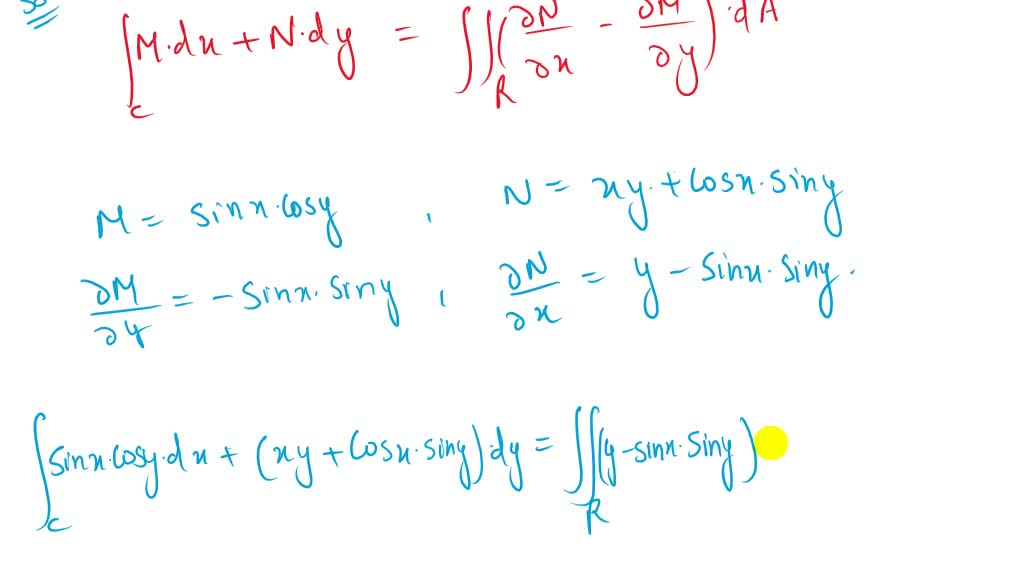 So
∫_C M·dx + N·dy = ∬_R (∂N/∂x - ∂M/∂y)·dA
M = sinx·cosy , N = xy·+cosx·siny
∂M/∂y = -sinx·siny , ∂N/∂x = y - sinx·siny·
∫_C sinx·cosy·dx + (xy+cosx·siny)·dy = ∬_R (y-sinx·siny)